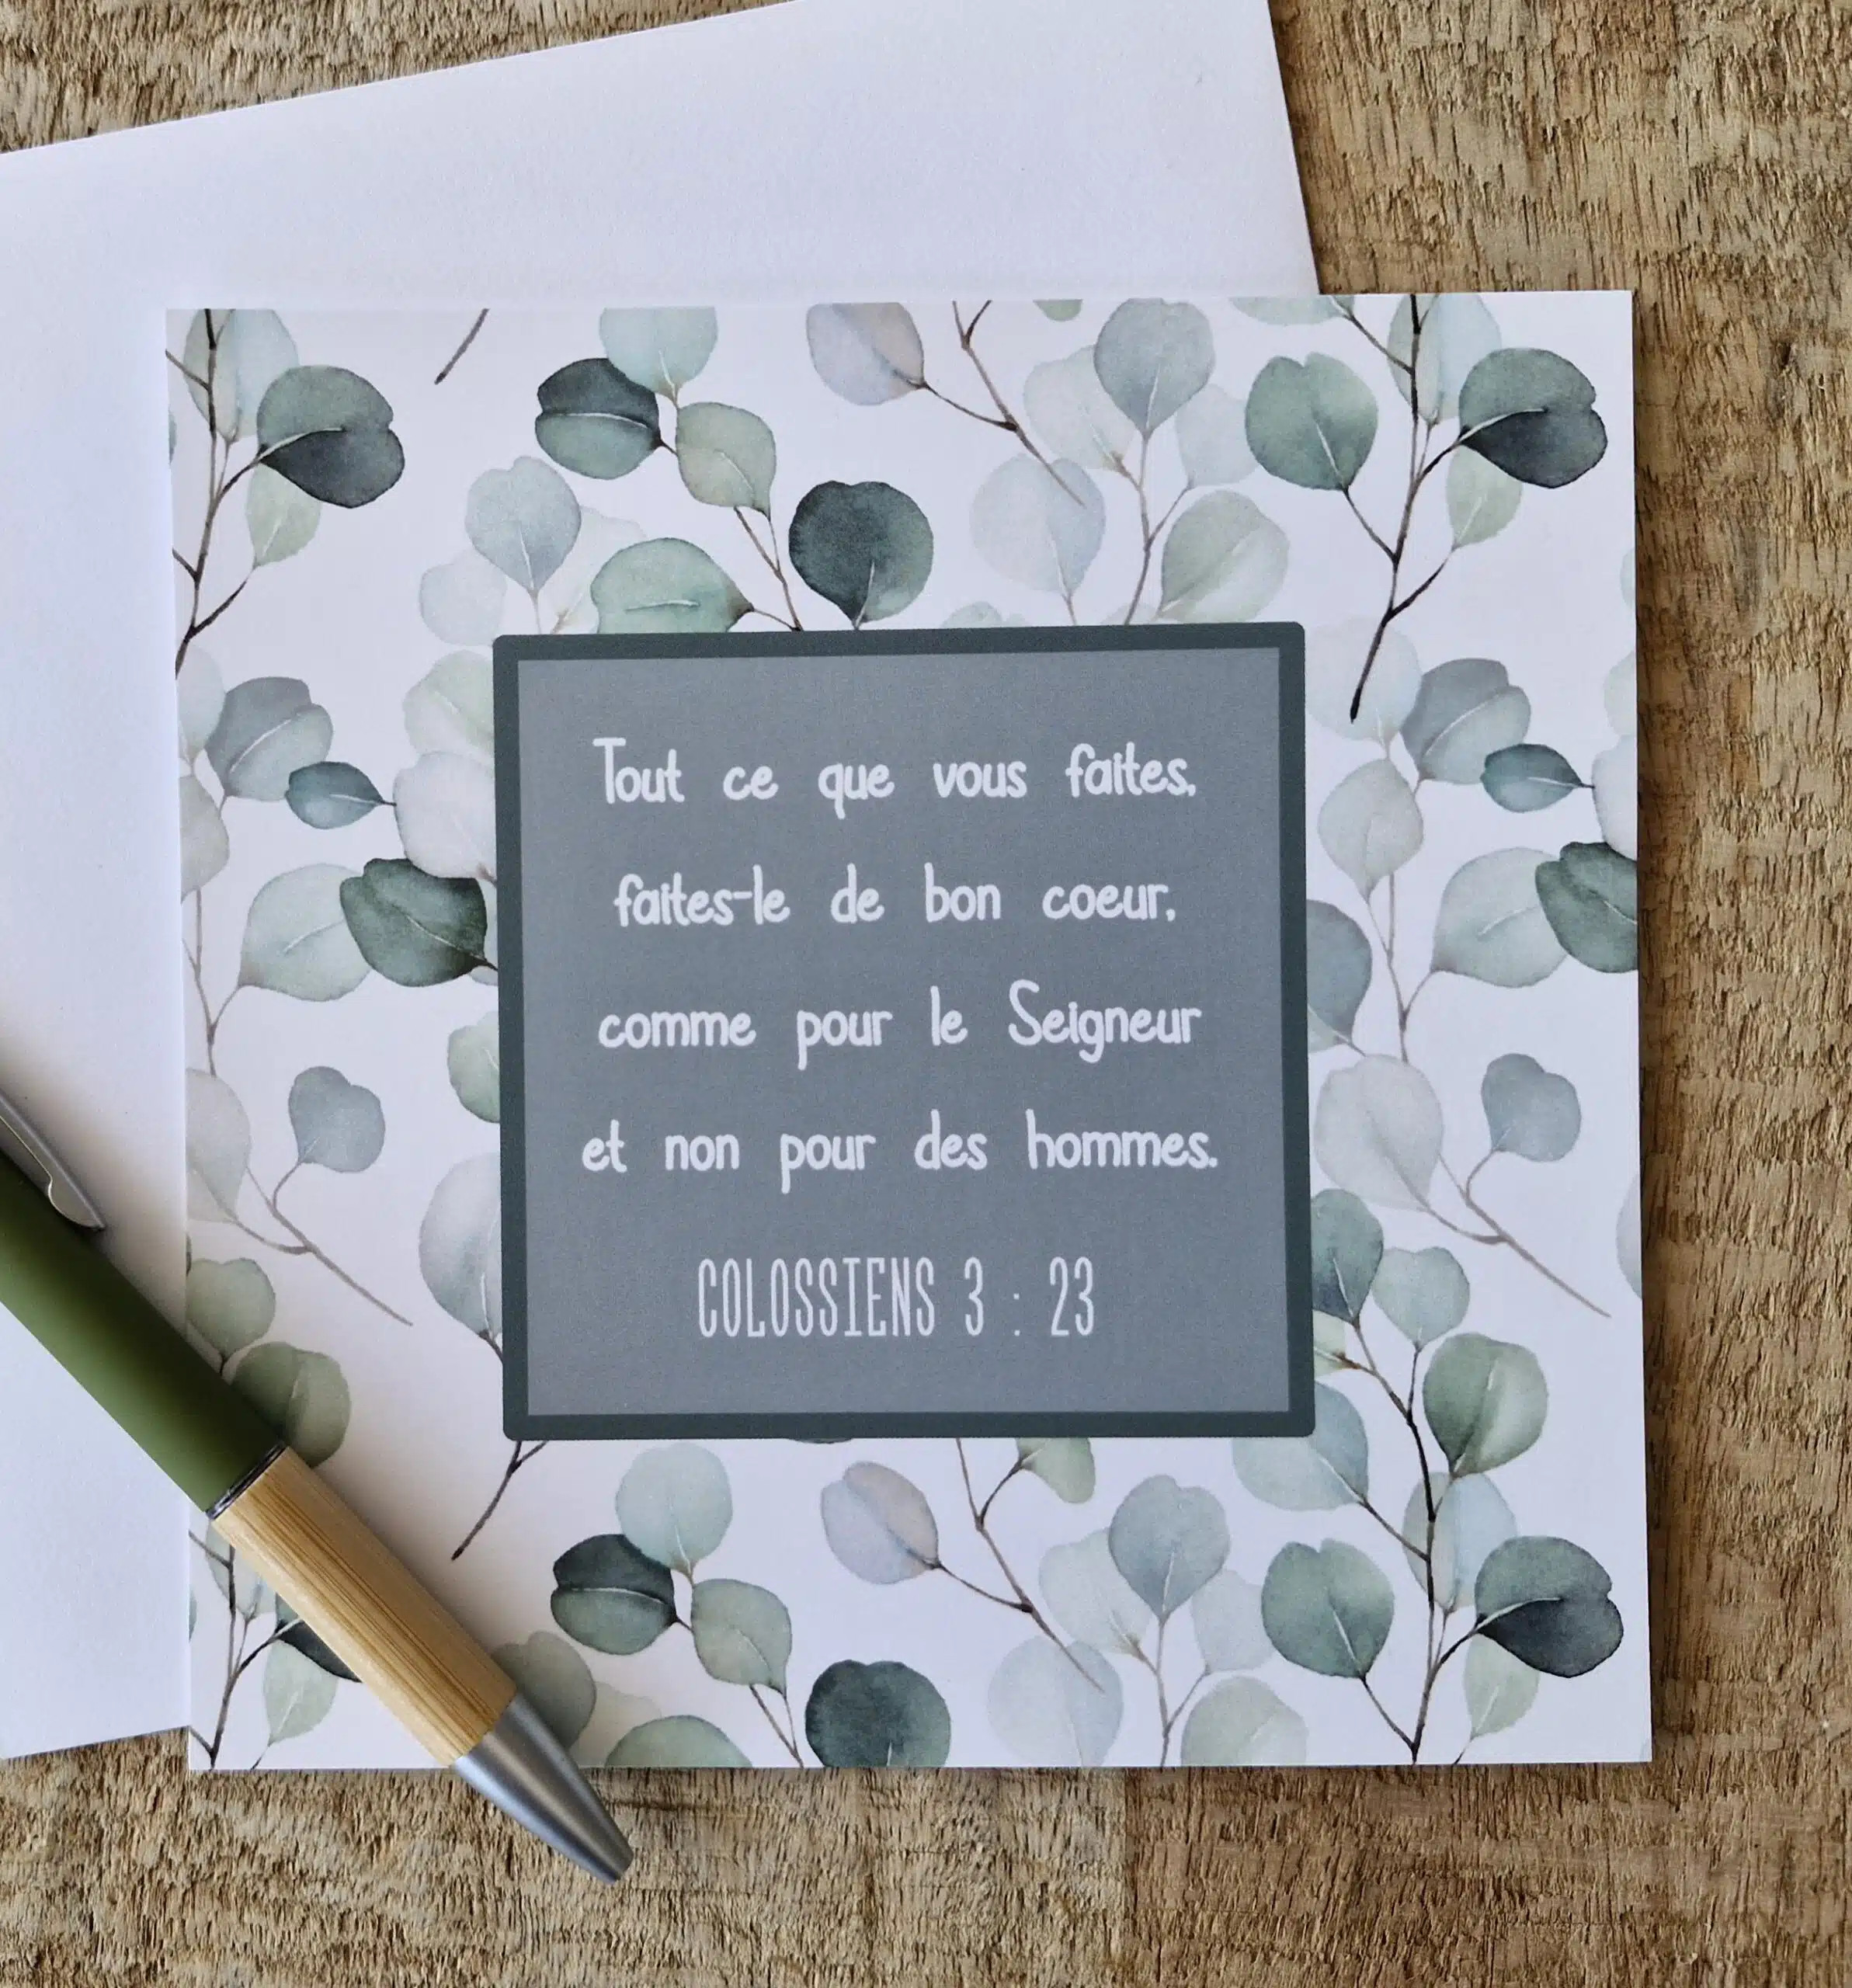 Tout ce que vous faites,
faites-le de bon coeur,
comme pour le Seigneur
et non pour des hommes.
COLOSSIENS 3 : 23